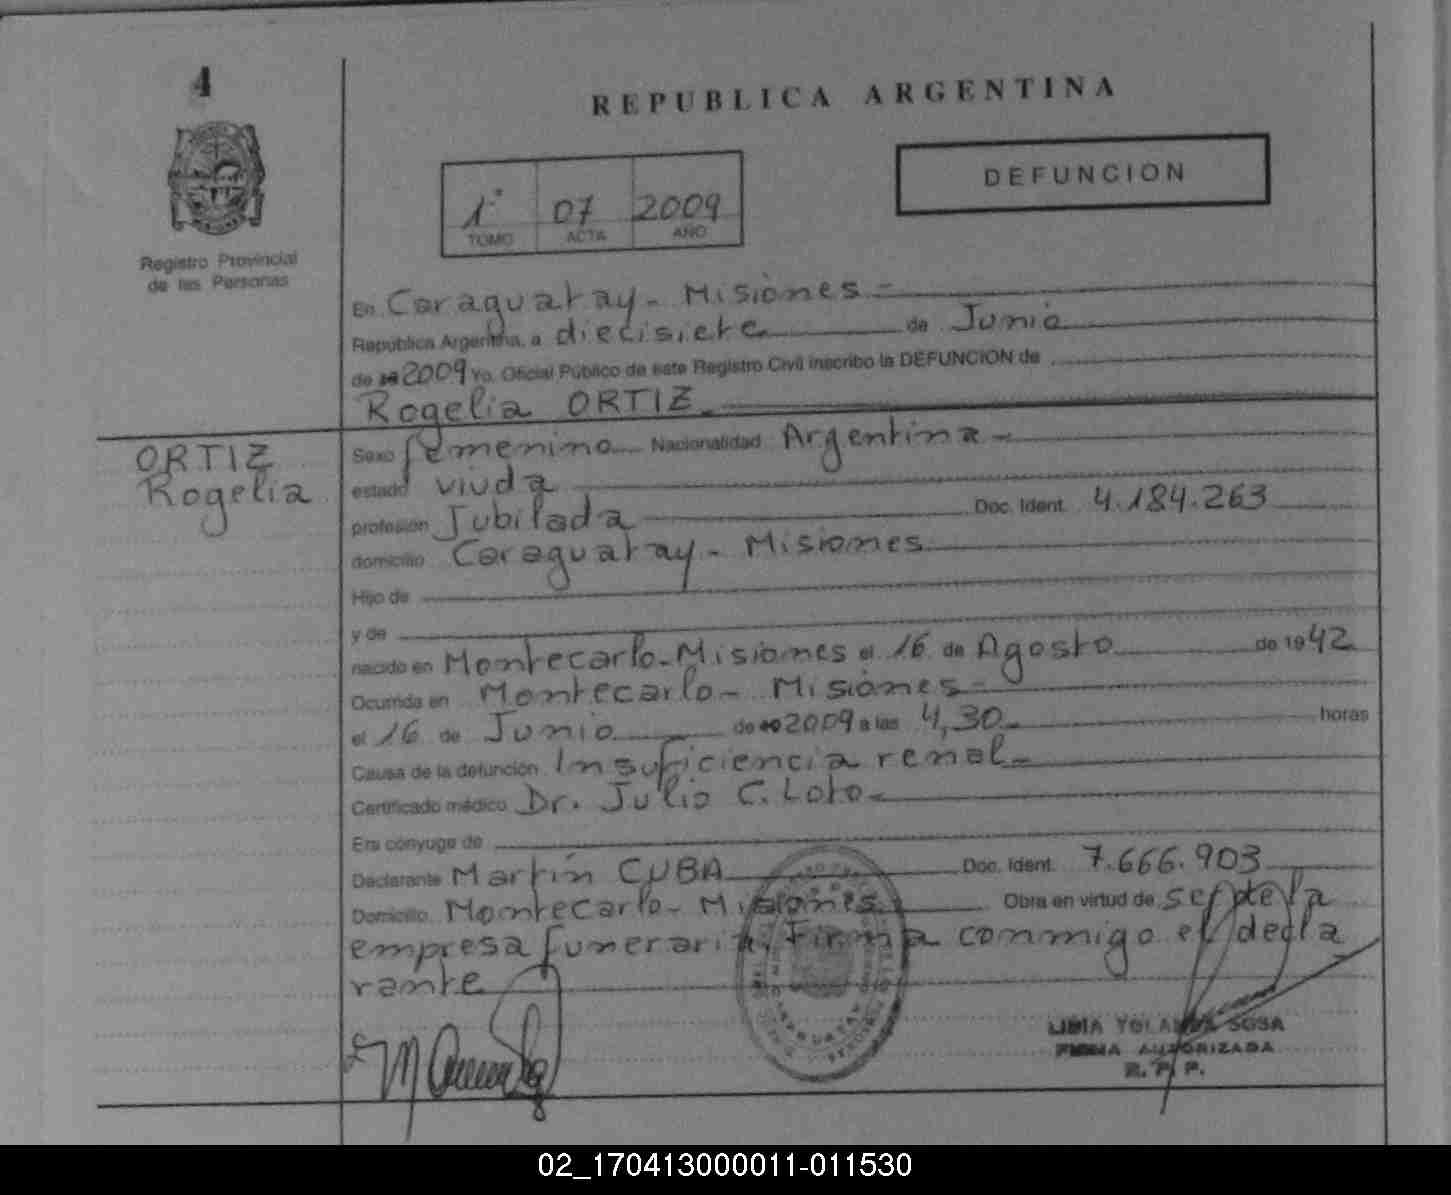 4
REPUBLICA ARGENTINA
DEFUNCION
1º 07 2009
TOMO ACTA AÑO
Registro Provincial
de las Personas
En Caraguatay - Misiones -
República Argentina, a diecisiete de Junio
de 19 2009 Yo, Oficial Público de este Registro Civil inscribo la DEFUNCION de
Rogelia ORTIZ
ORTIZ
Rogelia
Sexo femenino Nacionalidad Argentina -
estado viuda
profesión Jubilada Doc. Ident. 4.184.263
domicilio Caraguatay - Misiones
Hijo de
y de
nacido en Montecarlo - Misiones el 16 de Agosto de 1942
Ocurrida en Montecarlo - Misiones -
el 16 de Junio de 19 2009 a las 4,30 - horas
Causa de la defunción Insuficiencia renal -
Certificado médico Dr. Julio C. Loto -
Era cónyuge de
Declarante Martín CUBA Doc. Ident. 7.666.903
Domicilio Montecarlo - Misiones Obra en virtud de ser de la
empresa funeraria. Firma conmigo el decla
rante
LIDIA YOLANDA SOSA
FIRMA AUTORIZADA
R. P. P.
02_170413000011-011530